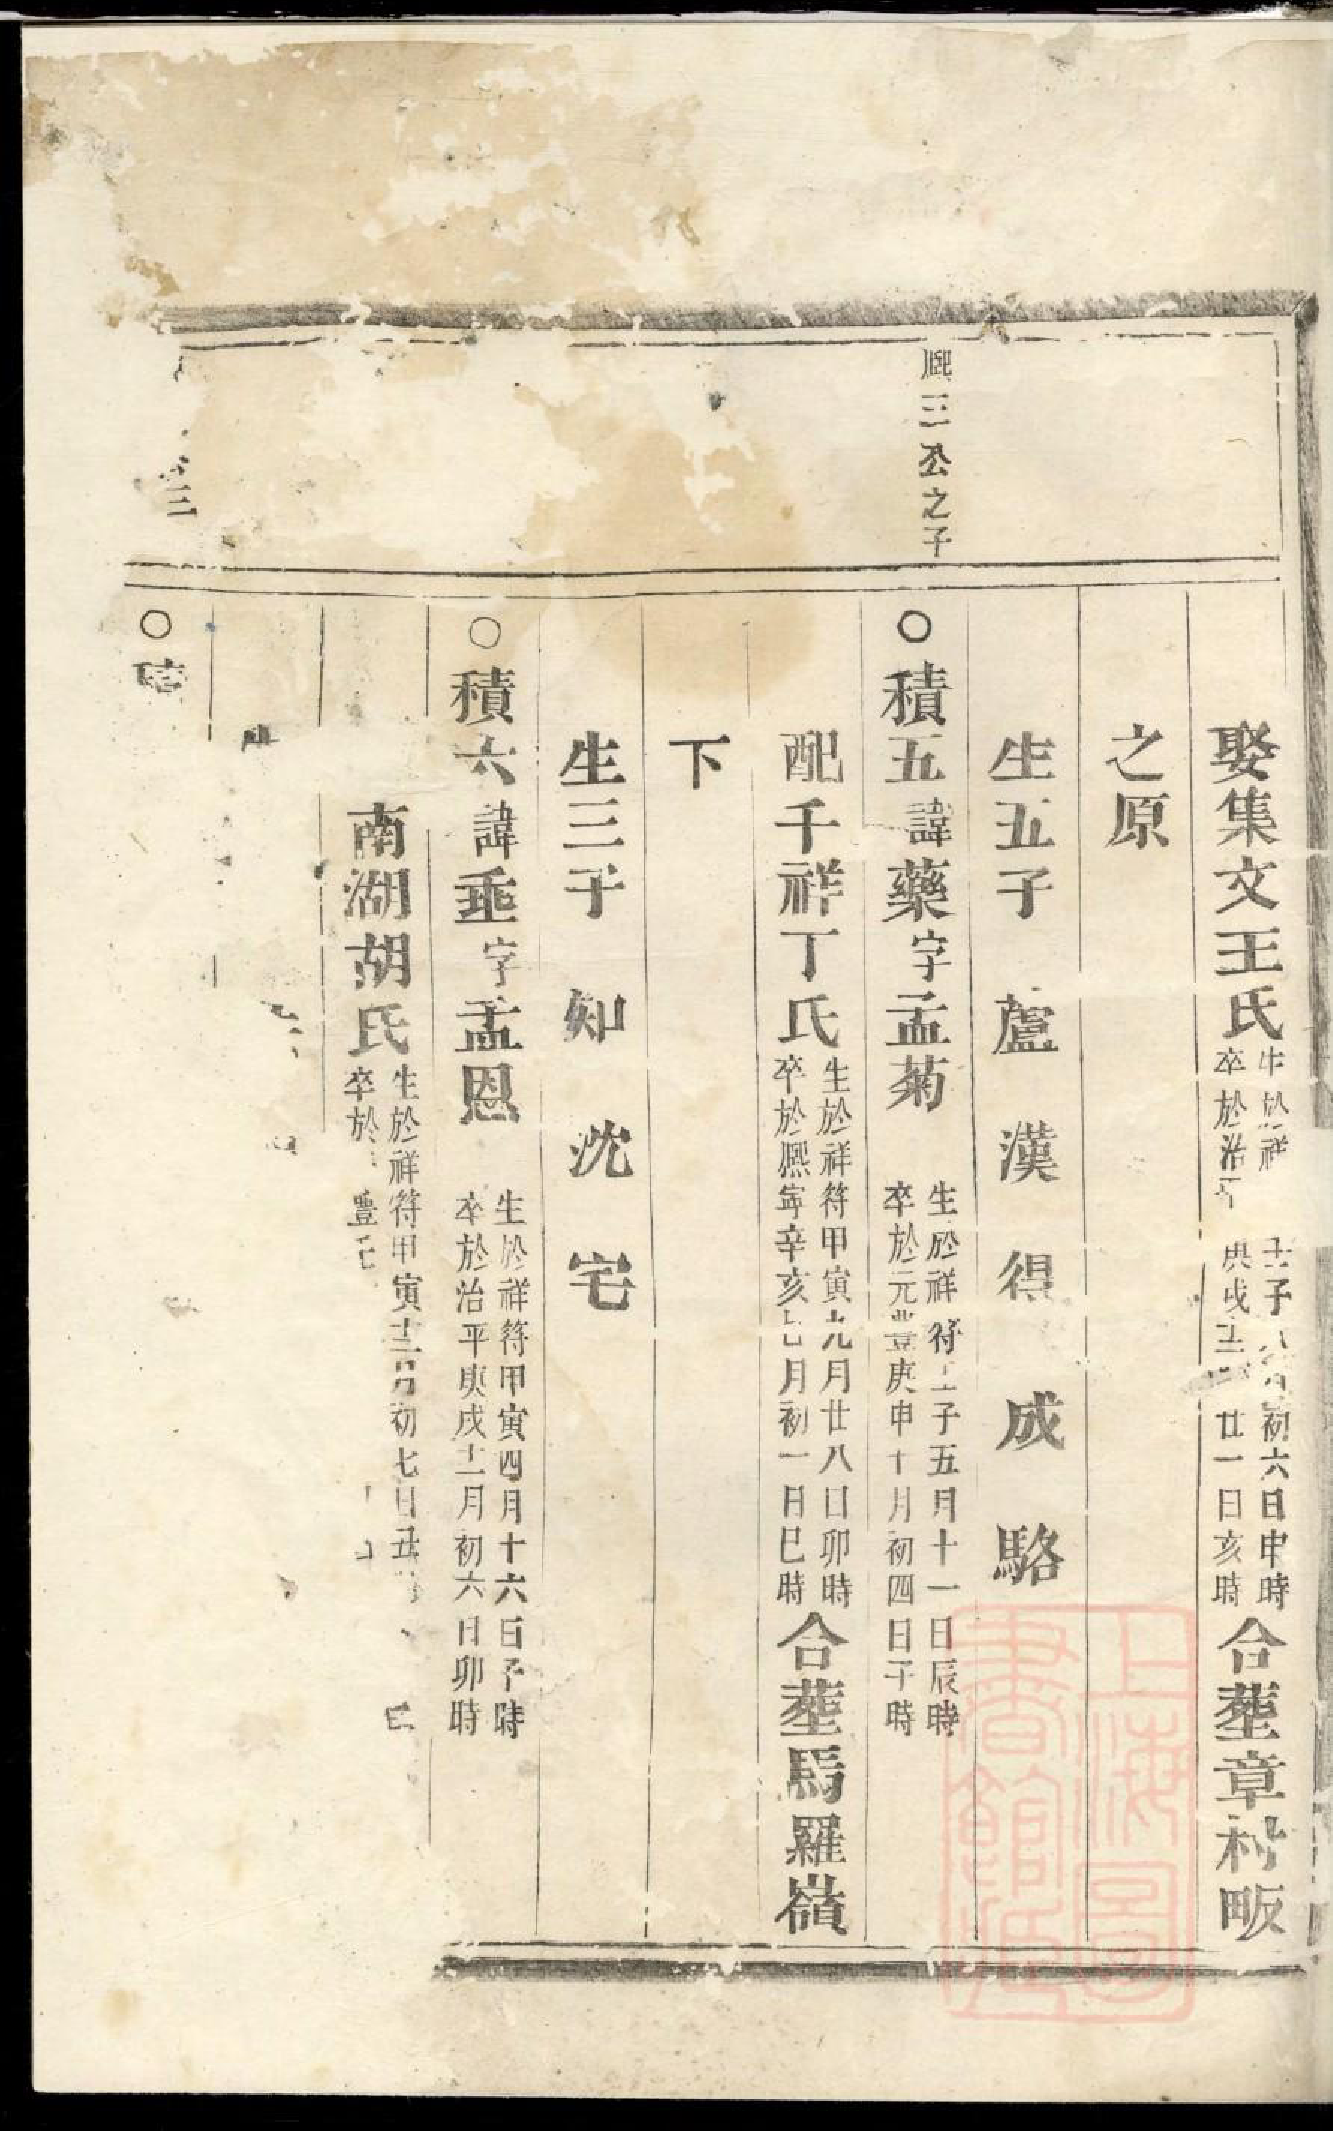 熙三公之子
娶集文王氏
生於祥 壬子 初六日申時
卒於治平庚戌 廿一日亥時
合葬章村畈
之原
生五子 蘆 漢 得 成 駱
○積五諱藥字孟菊
生於祥符壬子五月十一日辰時
卒於元豊庚申十月初四日午時
配千祥丁氏
生於祥符甲寅九月廿八日卯時
卒於熙寧辛亥七月初一日巳時
合葬馬羅嶺
下
生三子 知 沈 宅
○積六諱垂字孟恩
生於祥符甲寅四月十六日子時
卒於治平庚戌十二月初六日卯時
南湖胡氏
生於祥符甲寅十二月初七日丑
卒於 豊元
生
○
三
上海圖書館藏